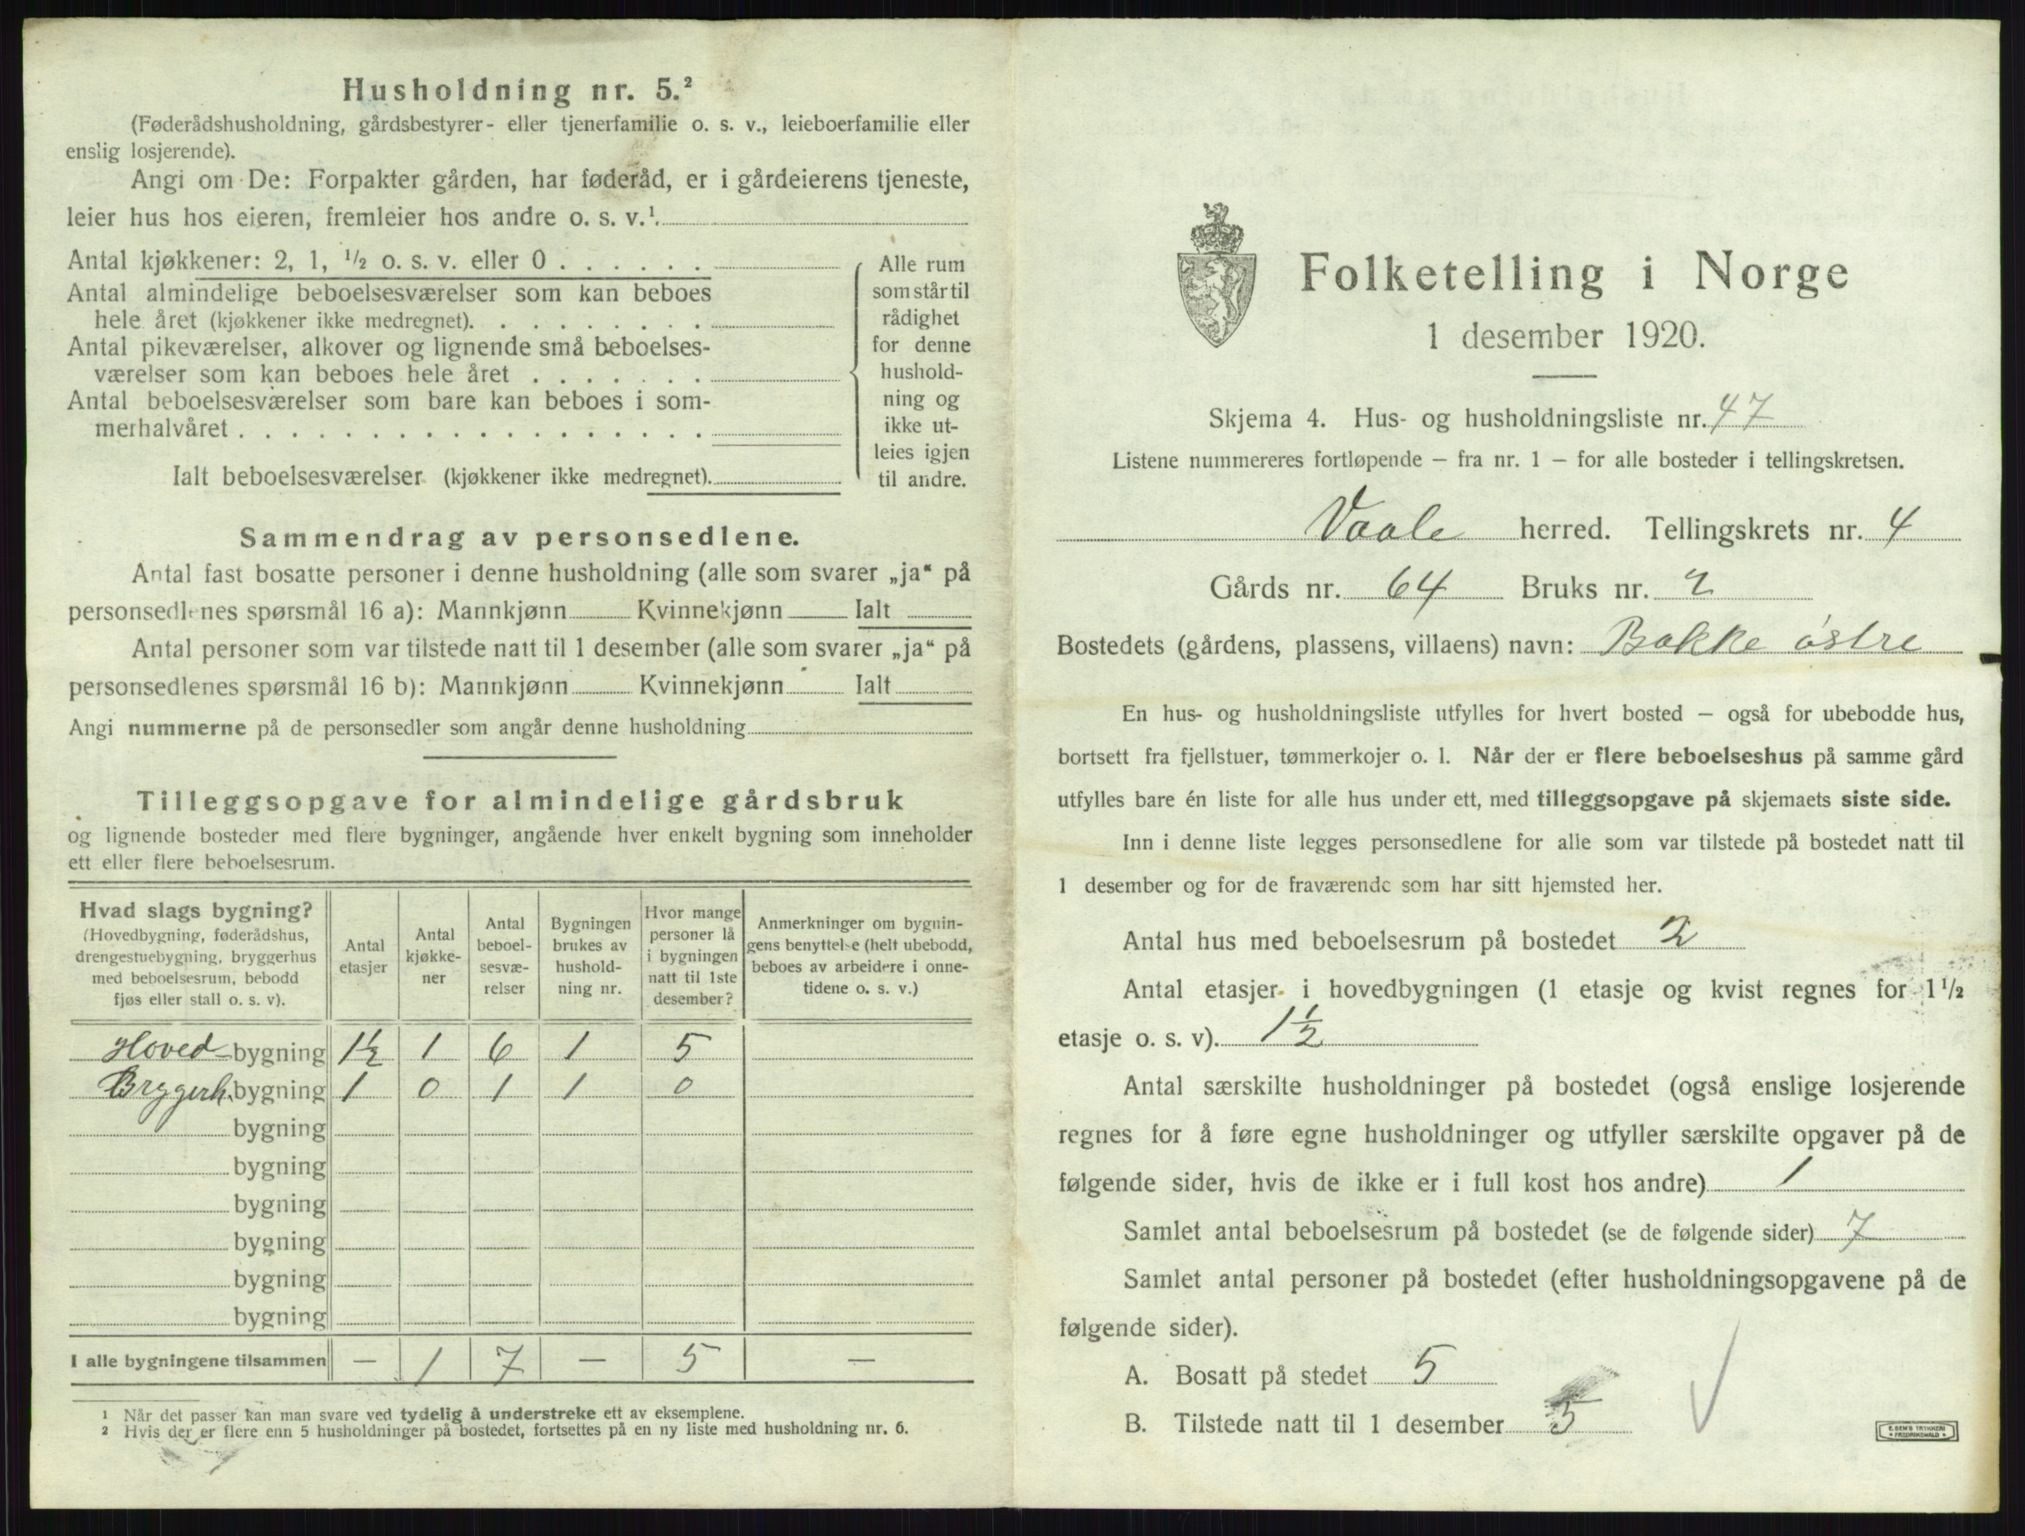 Husholdning nr. 5.²
(Føderådshusholdning, gårdsbestyrer- eller tjenerfamilie o. s. v., leieboerfamilie eller
enslig losjerende).
Angi om De: Forpakter gården, har føderåd, er i gårdeierens tjeneste,
leier hus hos eieren, fremleier hos andre o. s. v.¹.
Antal kjøkkener: 2, 1, ½ o. s. v. eller 0 . . . . . .
Antal almindelige beboelsesværelser som kan beboes
hele året (kjøkkener ikke medregnet). . . . . . . . .
Antal pikeværelser, alkover og lignende små beboelses-
værelser som kan beboes hele året . . . . . . .
Antal beboelsesværelser som bare kan beboes i som-
merhalvåret . . . . . . . . . . . . . . . . . .
Ialt beboelsesværelser (kjøkkener ikke medregnet).
Alle rum
som står til
rådighet
for denne
hushold-
ning og
ikke ut-
leies igjen
til andre.
Sammendrag av personsedlene.
Antal fast bosatte personer i denne husholdning (alle som svarer „ja“ på
personsedlenes spørsmål 16 a): Mannkjønn Kvinnekjønn Ialt
Antal personer som var tilstede natt til 1 desember (alle som svarer „ja“ på
personsedlenes spørsmål 16 b): Mannkjønn Kvinnekjønn Ialt
Angi nummerne på de personsedler som angår denne husholdning
Tilleggsopgave for almindelige gårdsbruk
og lignende bosteder med flere bygninger, angående hver enkelt bygning som inneholder
ett eller flere beboelsesrum.
Hvad slags bygning?
(Hovedbygning, føderådshus,
drengestuebygning, bryggerhus
med beboelsesrum, bebodd
fjøs eller stall o. s. v).
Antal
etasjer
Antal
kjøkke-
ner
Antal
beboel-
sesvæ-
relser
Bygningen
brukes av
hushold-
ning nr.
Hvor mange
personer lå
i bygningen
natt til 1ste
desember?
Anmerkninger om bygnin-
gens benyttelse (helt ubebodd,
beboes av arbeidere i onne-
tidene o. s. v.)
Hoved-bygning 1½ 1 6 1 5
Bryggerh. bygning 1 0 1 1 0
bygning
bygning
bygning
bygning
bygning
bygning
I alle bygningene tilsammen — 1 7 — 5 —
¹ Når det passer kan man svare ved tydelig å understreke ett av eksemplene.
² Hvis der er flere enn 5 husholdninger på bostedet, fortsettes på en ny liste med husholdning nr. 6.
Folketelling i Norge
1 desember 1920.
Skjema 4. Hus- og husholdningsliste nr. 47
Listene nummereres fortløpende — fra nr. 1 — for alle bosteder i tellingskretsen.
Vaale herred. Tellingskrets nr. 4
Gårds nr. 64 Bruks nr. 2
Bostedets (gårdens, plassens, villaens) navn: Bakke østre
En hus- og husholdningsliste utfylles for hvert bosted — også for ubebodde hus,
bortsett fra fjellstuer, tømmerkojer o. l. Når der er flere beboelseshus på samme gård
utfylles bare én liste for alle hus under ett, med tilleggsopgave på skjemaets siste side.
Inn i denne liste legges personsedlene for alle som var tilstede på bostedet natt til
1 desember og for de fraværende som har sitt hjemsted her.
Antal hus med beboelsesrum på bostedet 2
Antal etasjer i hovedbygningen (1 etasje og kvist regnes for 1½
etasje o. s. v). 1½
Antal særskilte husholdninger på bostedet (også enslige losjerende
regnes for å føre egne husholdninger og utfyller særskilte opgaver på de
følgende sider, hvis de ikke er i full kost hos andre) 1
Samlet antal beboelsesrum på bostedet (se de følgende sider) 7
Samlet antal personer på bostedet (efter husholdningsopgavene på de
følgende sider).
A. Bosatt på stedet 5
B. Tilstede natt til 1 desember 5